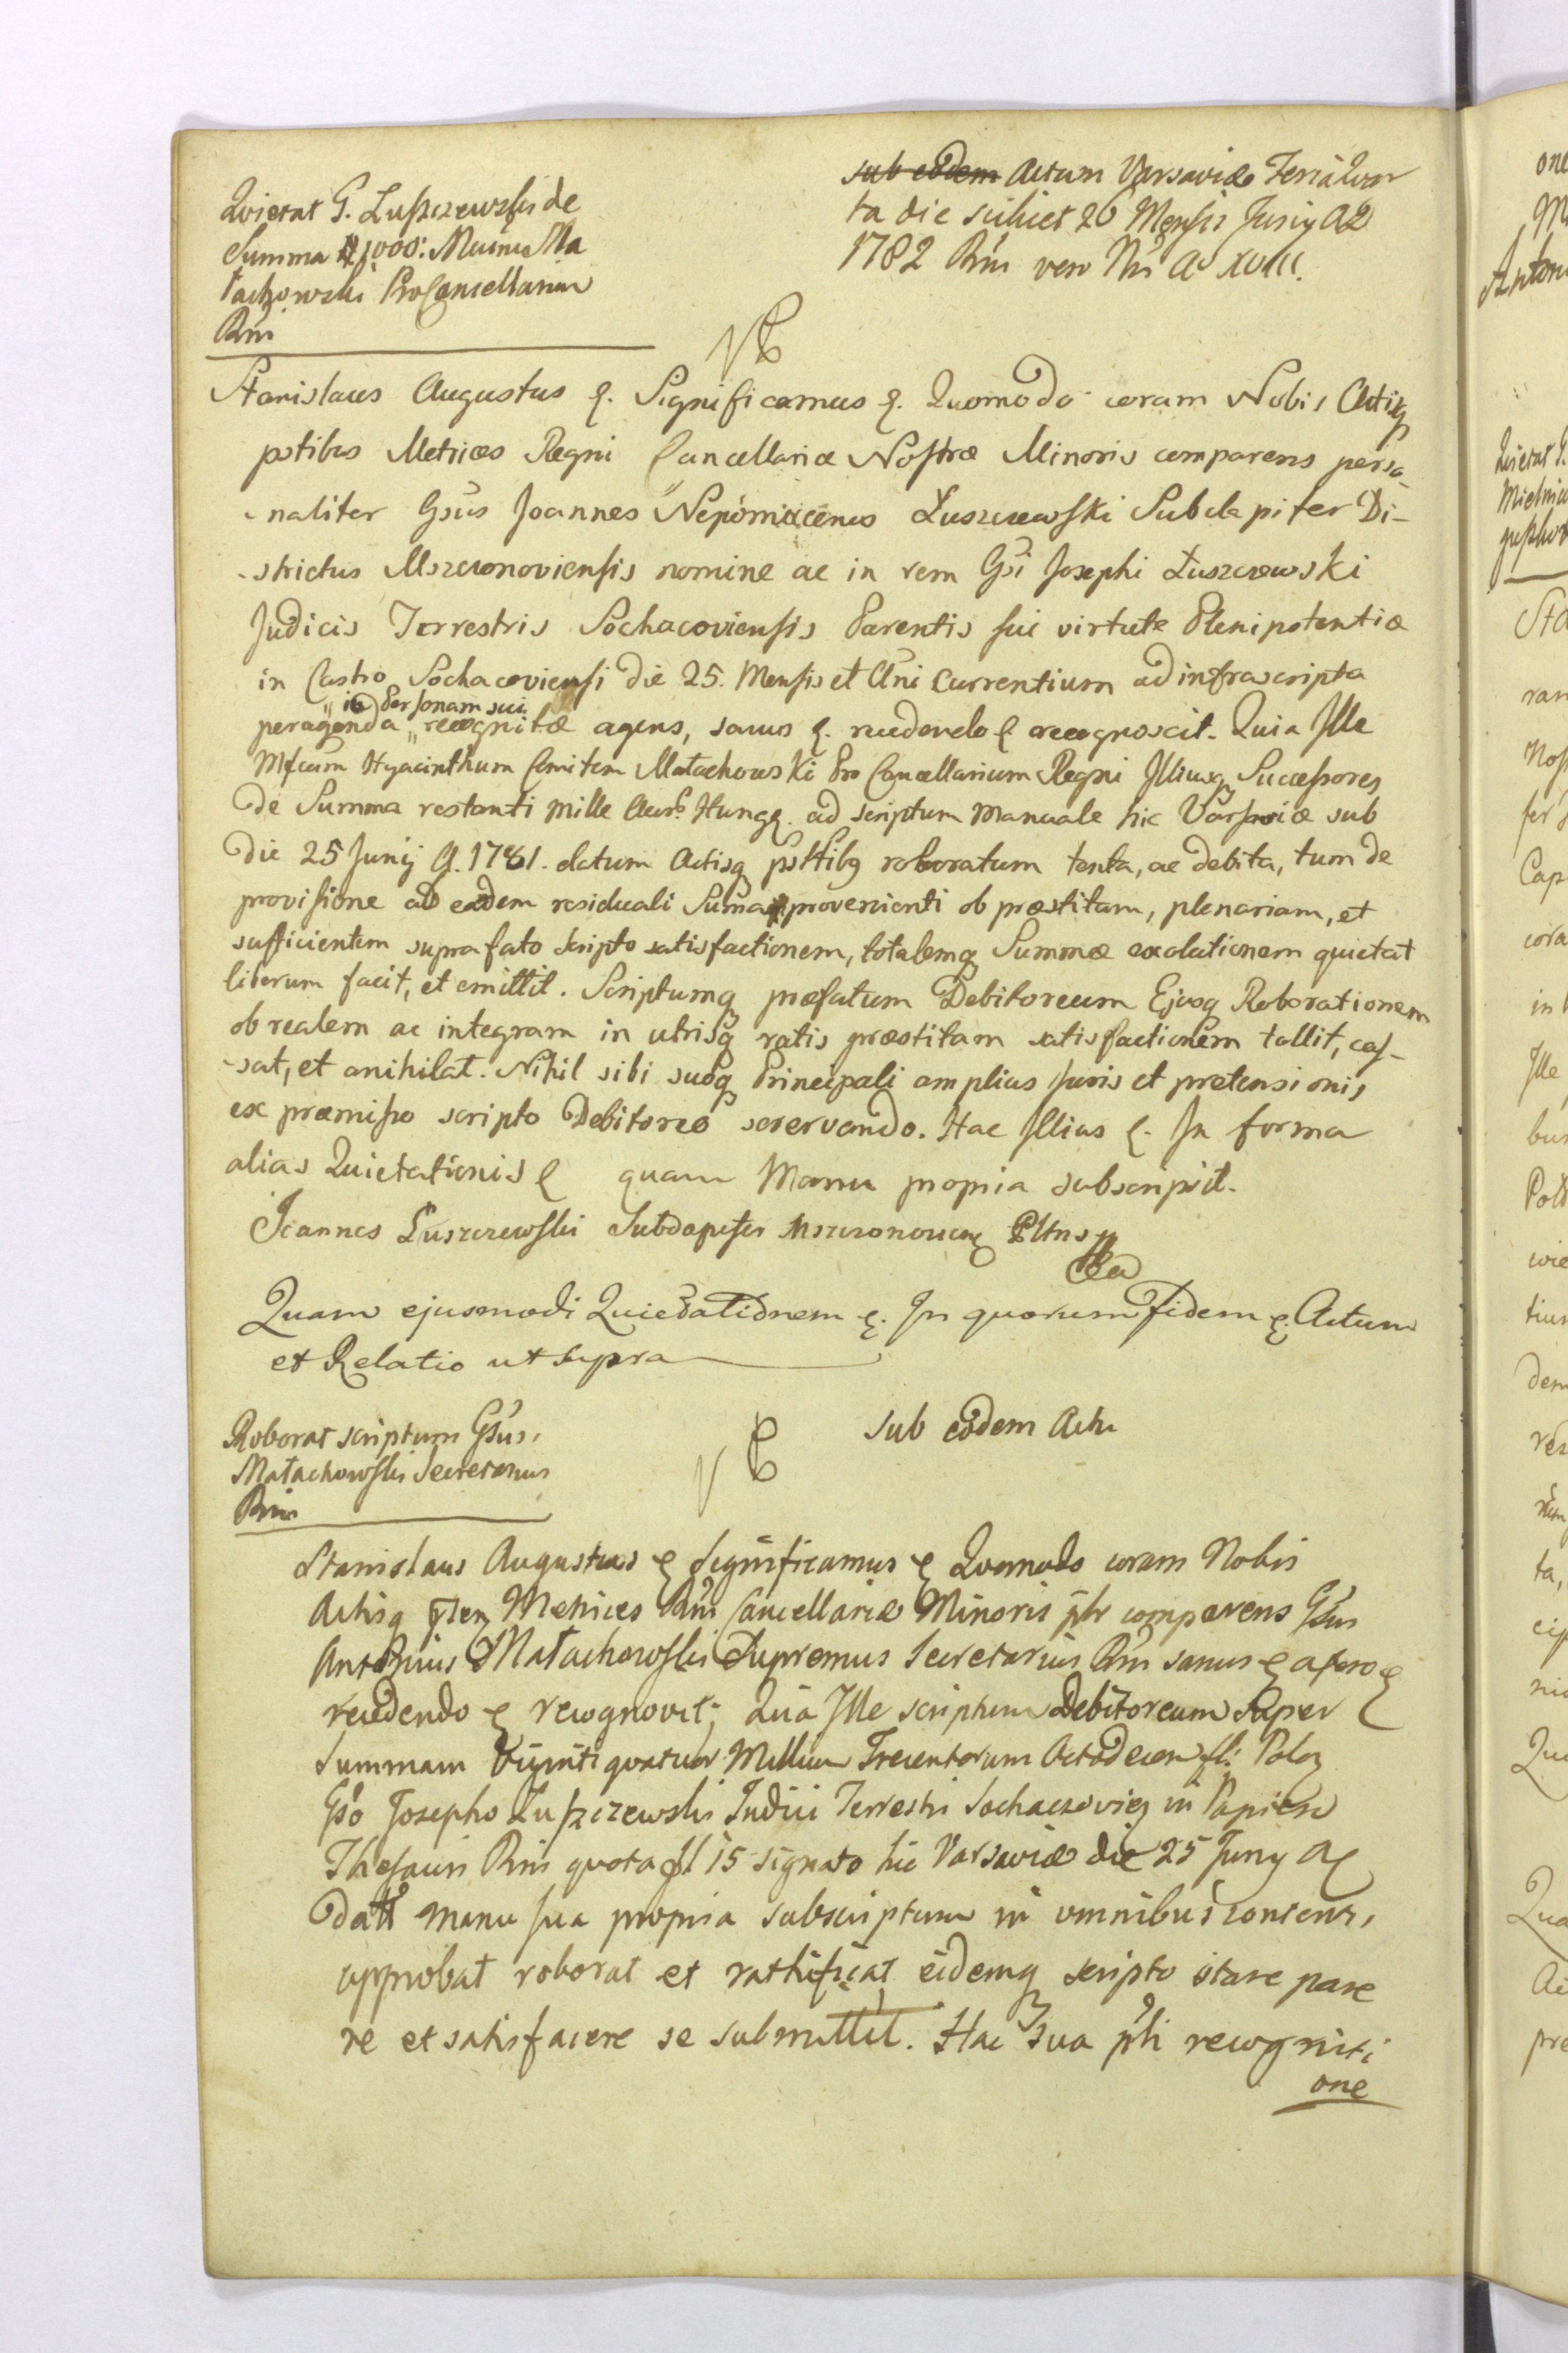 Quietat G. Luszczewski de
Summa # 1000: Mcum Ma
łachowski ProCancellarium
Rni
sub eodem Actum Varsaviæ Feria Quar
ta die scilicet 26 Mensis Junij A̅o
1782 Rni vero Nri A̅o XVIII.
Stanislaus Augustus &. Significamus &. Quomodo coram Nobis Actisq
pntibus Metrices Regni Cancellariæ Nostræ Minoris comparens perso-
-naliter Gsus Joannes Nepomucenus Łuszczewski Subdapifer Di-
-strictus Mszczonoviensis nomine ac in rem Gsi Josephi Łuszczewski
Judicis Terrestris Sochacoviensis Parentis sui virtute Plenipotentiæ
in Castro Sochacoviensi die 25. Mensis et Ani Currentium ad infrascripta
in Personam sui
peragenda recognitæ agens, sanus &. recedendo & recognoscit. Quia Ille
Mfcum Hyacinthum Comitem Małachowski Pro Cancellarium Regni Illiusq Successores
De Summa restanti mille Aur. Hung. ad scriptum Manuale hic Varsaviæ sub
Die 25 Junij A. 1781. datum Actisq pnttibq roboratum tenta, ac debita, tum de
provisione ab eadem residuali Suma provenienti ob præstitam, plenariam, et
sufficientem suprafato scripto satisfactionem, totalemq Summæ exolutionem quietat
liberum facit, et emittit. Scriptumq præfatum Debitoreum Ejusq Roborationem
ob realem ac integram in utrisq ratis præstitam satisfactionem tollit, cas-
-sat, et anihilat. Nihil sibi suoq Principali amplius Juris et pretensionis
ex præmisso scripto Debitoreo reservando. Hac Illius &. In forma
alias Quietationis & quam Manu propria subscripsit.
Joannes Łuszczewski Subdapifer Mszczonovien Pltns
Quam ejusmodi Quietationem &. In quorum Fidem &. Actum
et Relatio ut supra
Roborat scriptum Gsus
Małachowski Secretarius
Rni
sub eodem Actu
Stanislaus Augustus & Significamus & Quomodo coram Nobis
Actisq Metrices Rni Cancellariæ Minoris plr comparens Gsus
Antonius Małachowski Supremus Secretarius Rni sanus &
recedendo & recognovit; Quia Ille scriptum Debitoreum super
Summam Viginti quatuor Millium Trecentorum Octodecem fl: Pol
Gso Josepho Łuszczewski Judici Terrestri Sochaczovien in Papiero
Thesauri Rni quota fl 15 signato hic Varsaviæ die 25 Juny A
Datt manu sua propria subscriptum in omnibus content,
approbat roborat et rathificat eidemq scripto stare pare
re et satisfacere se submittit. Hac sua pnti recogniti
one